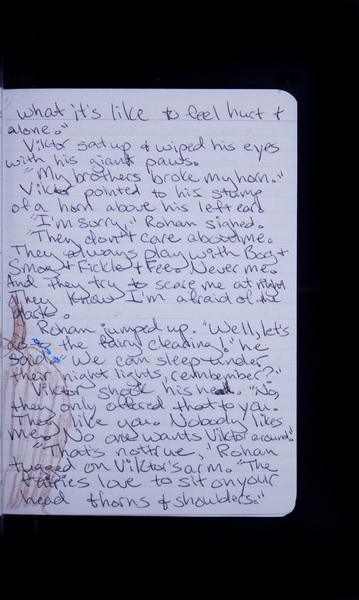 what it's like to feel hurt +
alone."
Viktor sat up + wiped his eyes
with his giant paws.
"My brothers broke my horn."
Viktor pointed to his stump
of a horn above his left ear.
"I'm sorry." Rohan signed.
"They don't care about me.
They always play with Boog +
Smog + Fickle + Fee. Never me.
And they try to scare me at night
They know I'm afraid of the
dark."
Rohan jumped up. "Well, let's
go to the fairy clearing!" he
said. "We can sleep under
their night lights, remember?"
Viktor shook his head. "No,
they only offered that to you.
They like you. Nobody likes
me. No one wants Viktor around."
"That's not true," Rohan
tugged on Viktor's arm. "The
fairies love to sit on your
head thorns + shoulders."